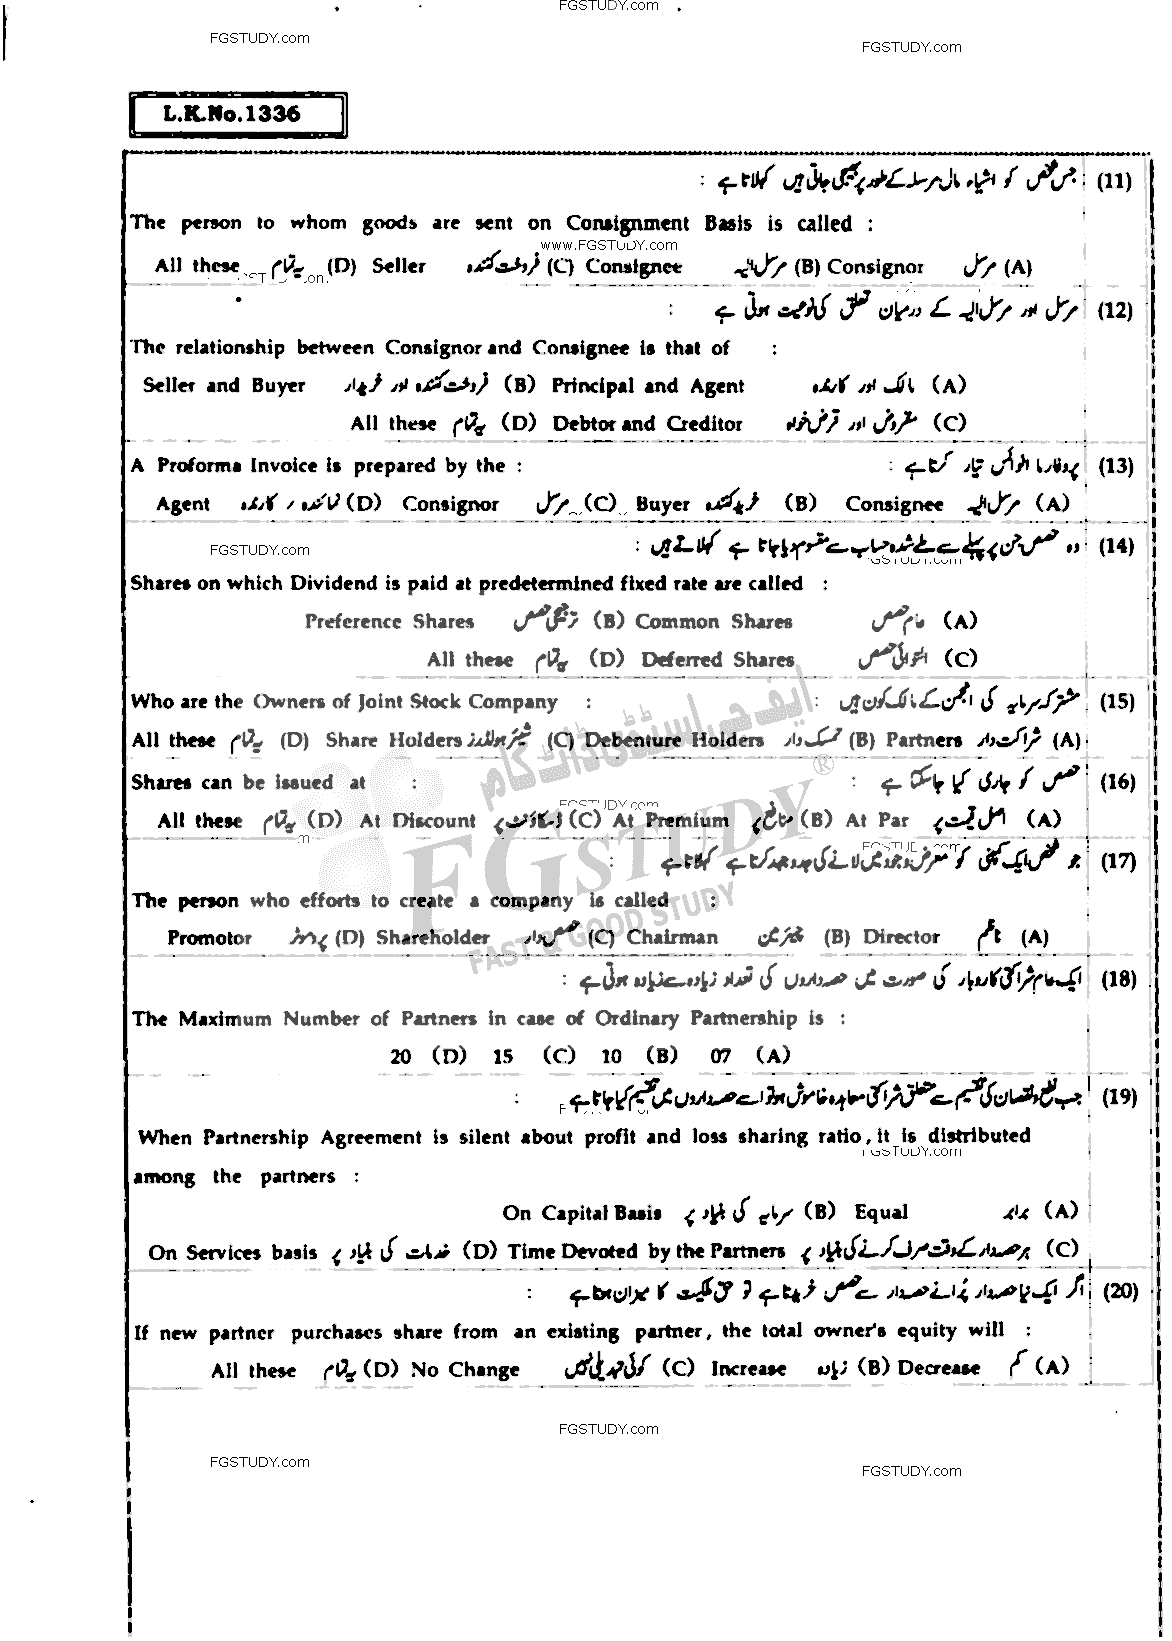 FGSTUDY.com
FGSTUDY.com
FGSTUDY.com
L.K.No.1336
(11) جس شخص کو اشیاء مال مرسلہ کے طور پر بھیجی جاتی ہیں کہلاتا ہے :
The person to whom goods are sent on Consignment Basis is called :
www.FGSTUDY.com
(A) مرسل Consignor (B) مرسل الیہ Consignee (C) فروخت کنندہ Seller (D) یہ تمام All these
(12) مرسل اور مرسل الیہ کے درمیان تعلق کی نوعیت ہوتی ہے :
The relationship between Consignor and Consignee is that of :
(A) مالک اور کارندہ Principal and Agent (B) فروخت کنندہ اور خریدار Seller and Buyer
(C) مقروض اور قرض خواہ Debtor and Creditor (D) یہ تمام All these
(13) پروفارما انوائس تیار کرتا ہے : A Proforma Invoice is prepared by the :
(A) مرسل الیہ Consignee (B) خرید کنندہ Buyer (C) مرسل Consignor (D) نمائندہ / کارندہ Agent
(14) وہ حصص جن پر پہلے سے طے شدہ حساب سے مقسوم دیا جاتا ہے کہلاتے ہیں :
FGSTUDY.com
GSTUDY.com
Shares on which Dividend is paid at predetermined fixed rate are called :
(A) عام حصص Common Shares (B) ترجیحی حصص Preference Shares
(C) التوائی حصص Deferred Shares (D) یہ تمام All these
(15) مشترکہ سرمایہ کی انجمن کے مالک کون ہیں : Who are the Owners of Joint Stock Company :
(A) شراکت دار Partners (B) تمسک دار Debenture Holders (C) شیئر ہولڈرز Share Holders (D) یہ تمام All these
ایف جی اسٹڈی ڈاٹ کام
(16) حصص کو جاری کیا جا سکتا ہے : Shares can be issued at :
FGSTUDY.com
(A) اصل قیمت پر At Par (B) منافع پر At Premium (C) ڈسکاؤنٹ پر At Discount (D) یہ تمام All these
FGSTUDY ®
FAST & GOOD STUDY
(17) جو شخص ایک کمپنی کو معرض وجود میں لانے کی جدوجہد کرتا ہے کہلاتا ہے :
The person who efforts to create a company is called :
(A) ناظم Director (B) چیئرمین Chairman (C) حصص دار Shareholder (D) پروموٹر Promotor
(18) ایک عام شراکتی کاروبار کی صورت میں حصہ داروں کی تعداد زیادہ سے زیادہ ہوتی ہے :
The Maximum Number of Partners in case of Ordinary Partnership is :
(A) 07 (B) 10 (C) 15 (D) 20
(19) جب نفع و نقصان کی تقسیم سے متعلق شراکتی معاہدہ خاموش ہو تو اسے حصہ داروں میں تقسیم کیا جاتا ہے :
When Partnership Agreement is silent about profit and loss sharing ratio, it is distributed
FGSTUDY.com
among the partners :
(A) برابر Equal (B) سرمایہ کی بنیاد پر On Capital Basis
(C) ہر حصہ دار کے وقت صرف کرنے کی بنیاد پر Time Devoted by the Partners (D) خدمات کی بنیاد پر On Services basis
(20) اگر ایک نیا حصہ دار پرانے حصہ دار سے حصص خریدتا ہے تو حق ملکیت کا میزان ہوتا ہے :
If new partner purchases share from an existing partner, the total owner's equity will :
(A) کم Decrease (B) زیادہ Increase (C) کوئی تبدیلی نہیں No Change (D) یہ تمام All these
FGSTUDY.com
FGSTUDY.com
FGSTUDY.com